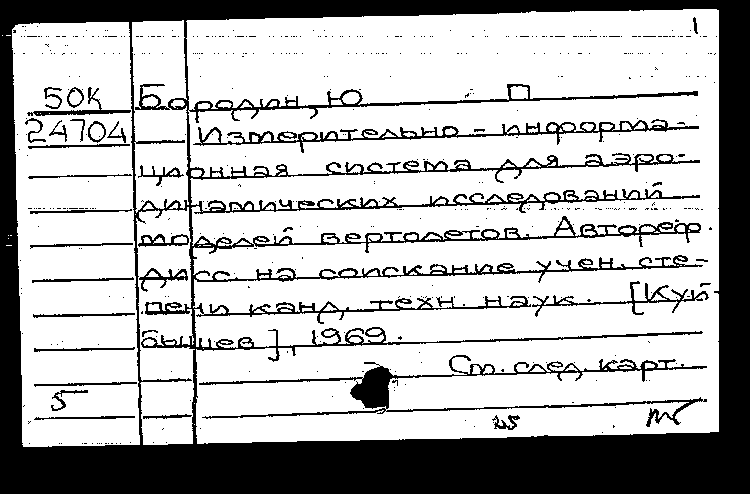 1
50К Бородин, Ю П
24704 Измерительно-информа-
ционная система для аэро-
динамических исследований
моделей вертолетов. Автореф.
дисс. на соискание учен. сте-
пени канд. техн. наук. [Куй-
бышев], 1969.
См. след. карт.
5